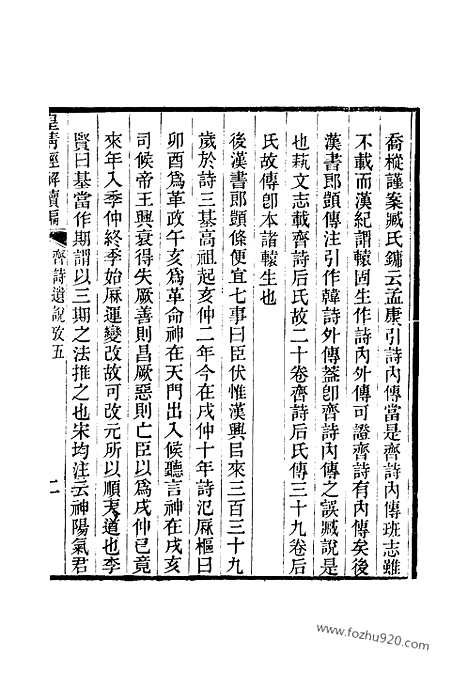 喬樅謹案臧氏鏞云孟康引詩內傳當是齊詩內傳班志雖
不載而漢紀謂轅固生作詩內外傳可證齊詩有內傳矣後
漢書郎顗傳注引作韓詩外傳蓋卽齊詩內傳之誤臧說是
也蓺文志載齊詩后氏故二十卷齊詩后氏傳三十九卷后
氏故傳卽本諸轅生也
後漢書郎顗條便宜七事曰臣伏惟漢興目來三百三十九
歲於詩三基高祖起亥仲二年今在戌仲十年詩氾厤樞曰
卯酉爲革政午亥爲革命神在天門出入候聽言神在戌亥
司候帝王興衰得失厥善則昌厥惡則亡臣以爲戌仲已竟
來年入季仲終季始厤運變改故可改元所以順天道也李
賢曰基當作期謂以三期之法推之也宋均注云神陽氣君
皇淸經解續編
齊詩遺說攷五
二
www.fozhu920.com